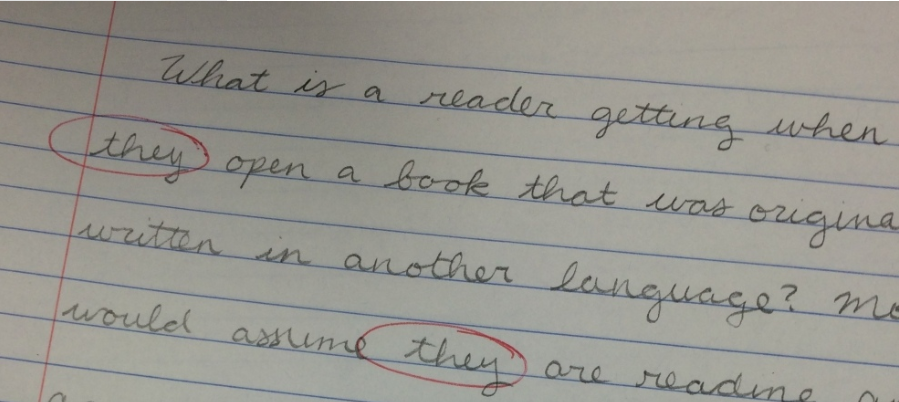 What is a reader getting when
they open a book that was origina
written in another language?
would assume they are reading